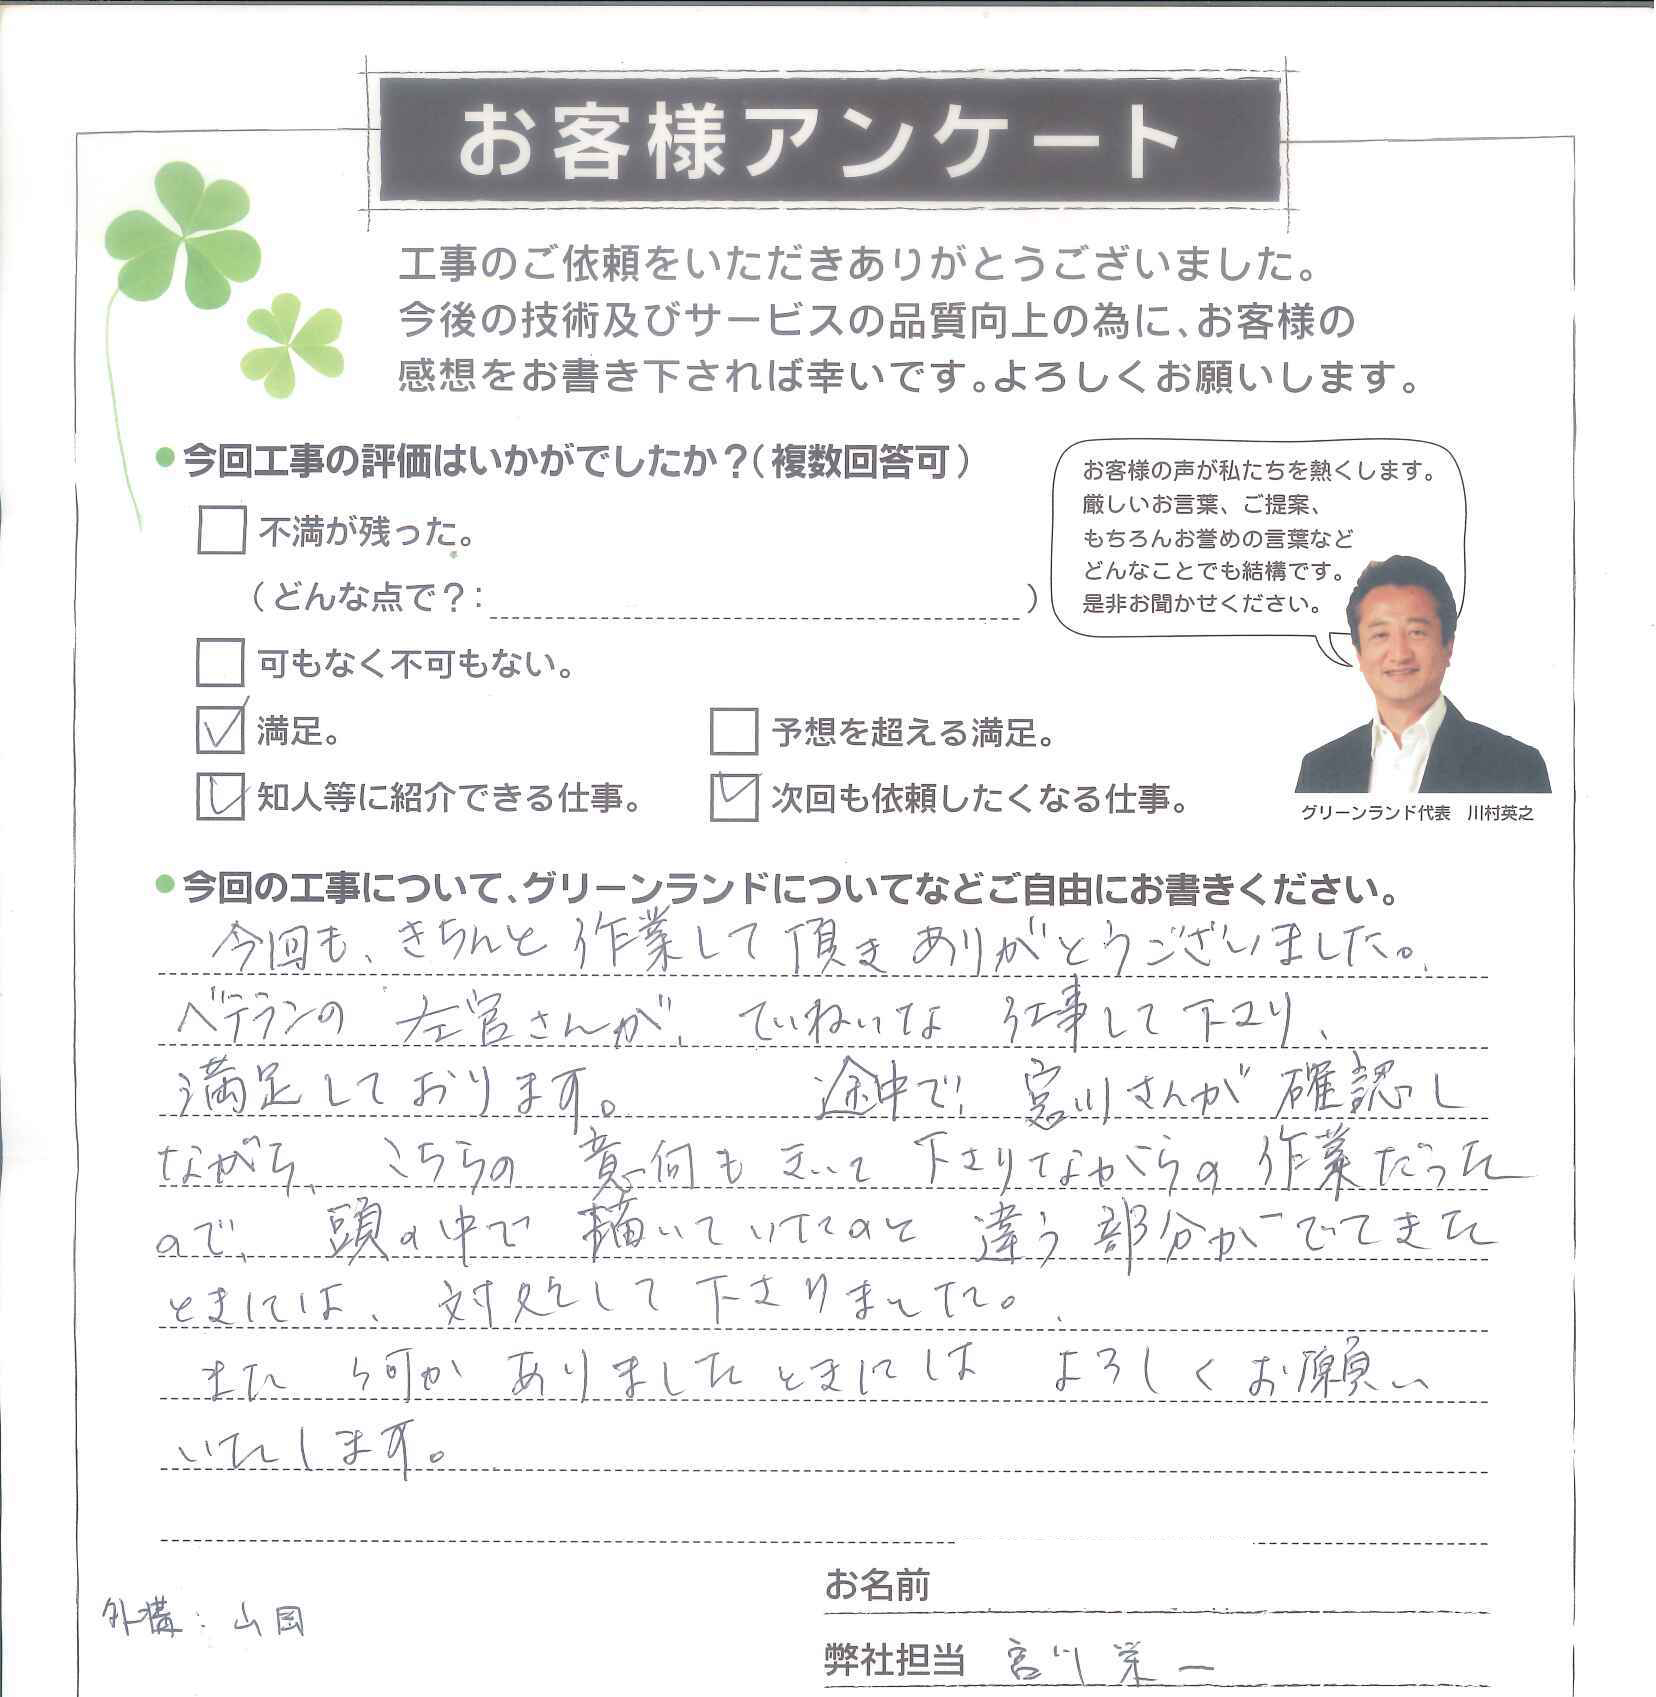 お客様アンケート
工事のご依頼をいただきありがとうございました。
今後の技術及びサービスの品質向上の為に、お客様の
感想をお書き下されば幸いです。よろしくお願いします。
●今回工事の評価はいかがでしたか？(複数回答可)
不満が残った。
(どんな点で？：)
可もなく不可もない。
満足。
予想を超える満足。
知人等に紹介できる仕事。
次回も依頼したくなる仕事。
お客様の声が私たちを熱くします。
厳しいお言葉、ご提案、
もちろんお誉めの言葉など
どんなことでも結構です。
是非お聞かせください。
グリーンランド代表　川村英之
●今回の工事について、グリーンランドについてなどご自由にお書きください。
今回も、きちんと作業して頂きありがとうございました。
ベテランの左官さんが、ていねいな仕事して下さり、
満足しております。　途中で、宮川さんが確認し
ながら、こちらの意向もきいて下さりながらの作業だった
ので、頭の中で描いていたのと違う部分がでてきた
ときには、対処して下さりました。
また何かありましたときには よろしくお願い
いたします。
お名前
外構：山岡
弊社担当 宮川 栄一